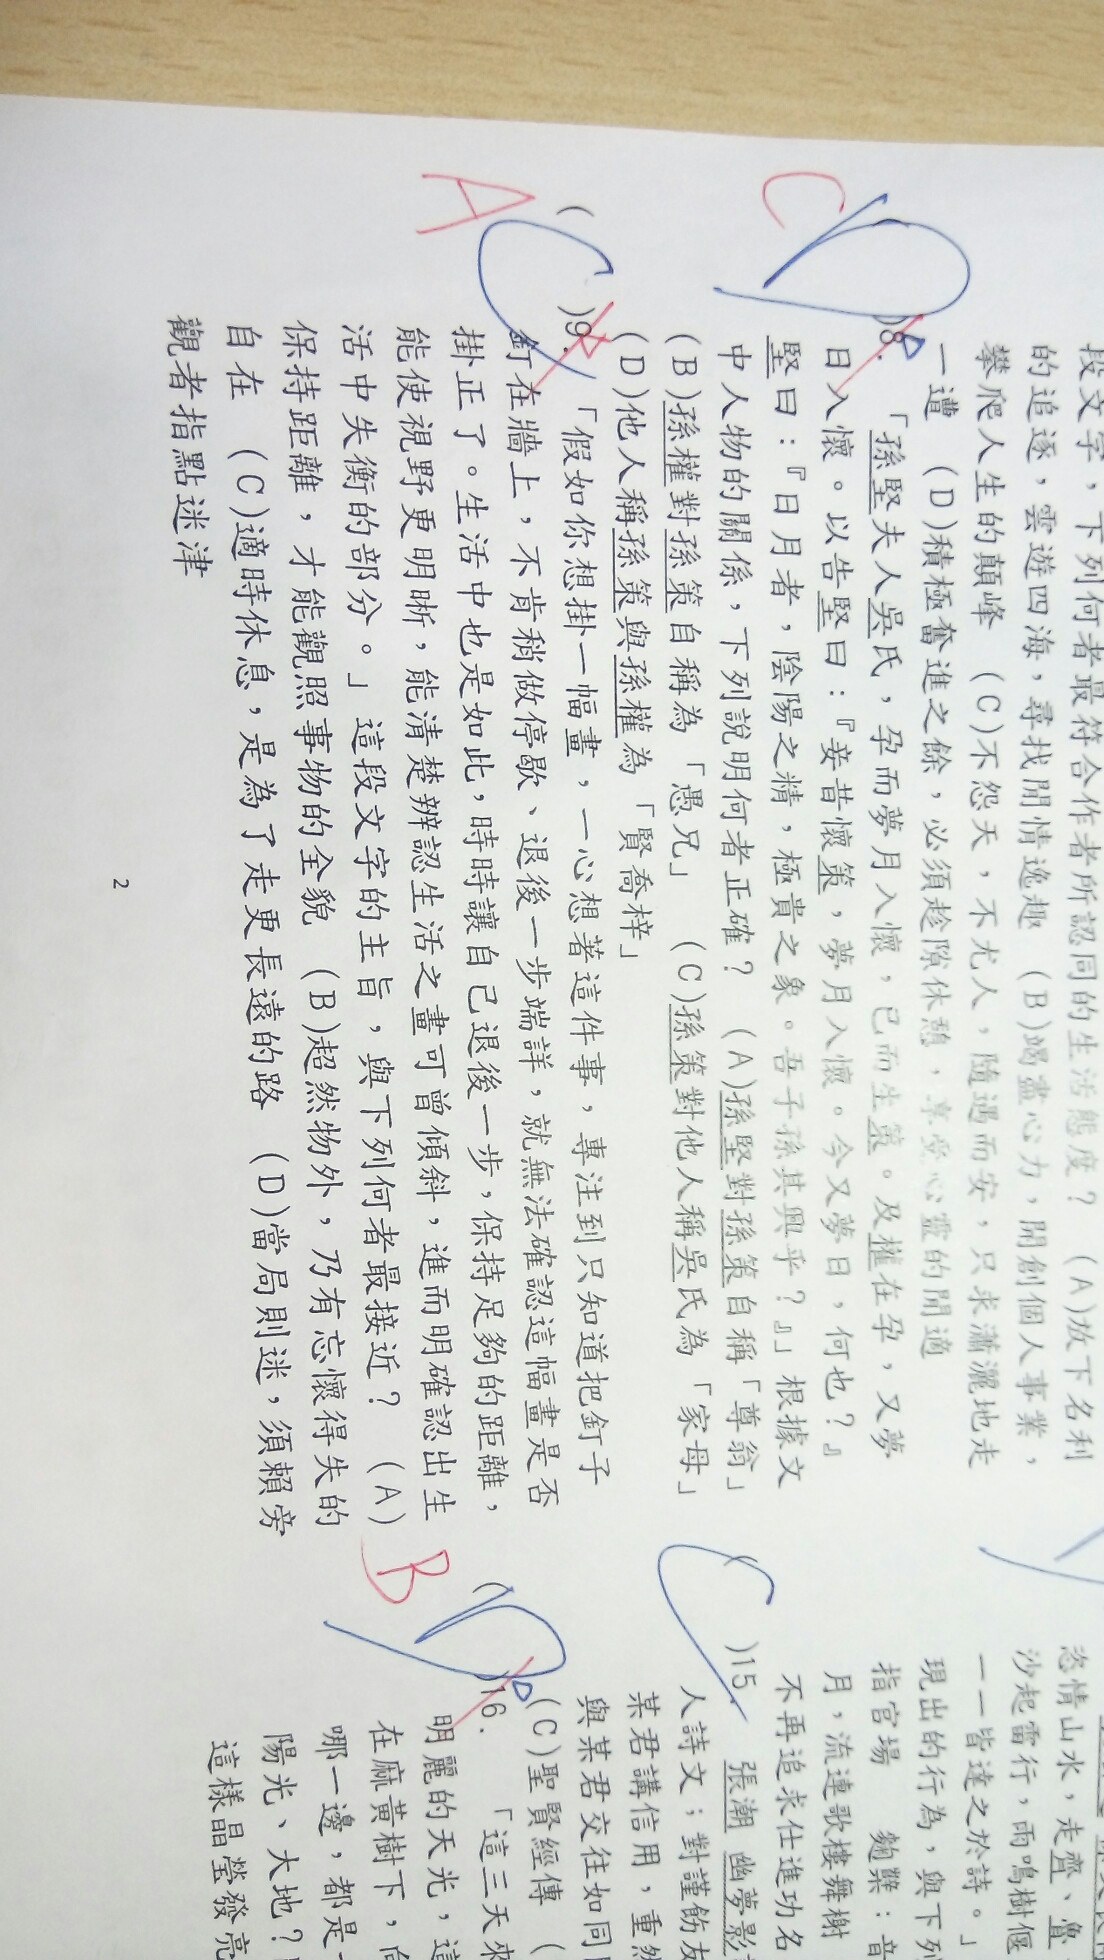 段文字，下列何者最符合作者所認同的生活態度？ (A)放下名利
的追逐，雲遊四海，尋找閒情逸趣 (B)竭盡心力，開創個人事業，
攀爬人生的顛峰 (C)不怨天，不尤人，隨遇而安，只求瀟灑地走
一遭 (D)積極奮進之餘，必須趁隙休憩，享受心靈的閒適
C
D
)8. 「孫堅夫人吳氏，孕而夢月入懷，已而生策。及權在孕，又夢
日入懷。以告堅曰：『妾昔懷策，夢月入懷。今又夢日，何也？』
堅曰：『日月者，陰陽之精，極貴之象。吾子孫其興乎？』」根據文
中人物的關係，下列說明何者正確？ (A)孫堅對孫策自稱「尊翁」
(B)孫權對孫策自稱為「愚兄」 (C)孫策對他人稱吳氏為「家母」
(D)他人稱孫策與孫權為「賢喬梓」
A
C
( )9. 「假如你想掛一幅畫，一心想著這件事，專注到只知道把釘子
釘在牆上，不肯稍做停歇、退後一步端詳，就無法確認這幅畫是否
掛正了。生活中也是如此，時時讓自己退後一步，保持足夠的距離，
能使視野更明晰，能清楚辨認生活之畫可曾傾斜，進而明確認出生
活中失衡的部分。」這段文字的主旨，與下列何者最接近？ (A)
保持距離，才能觀照事物的全貌 (B)超然物外，乃有忘懷得失的
自在 (C)適時休息，是為了走更長遠的路 (D)當局則迷，須賴旁
觀者指點迷津
2
恣情山水，走齊、魯
沙起雷行，雨鳴樹偃
一一皆達之於詩。」
現出的行為，與下列
指官場 麴櫱：音
月，流連歌樓舞榭
不再追求仕進功名
C
( )15 張潮 幽夢影
人詩文；對謹飭友
某君講信用，重然
與某君交往如同
(C)聖賢經傳 (
B
D
( )16. 「這三天來
明麗的天光，這
在麻黃樹下，向
哪一邊，都是一
陽光、大地？
這樣晶瑩發亮